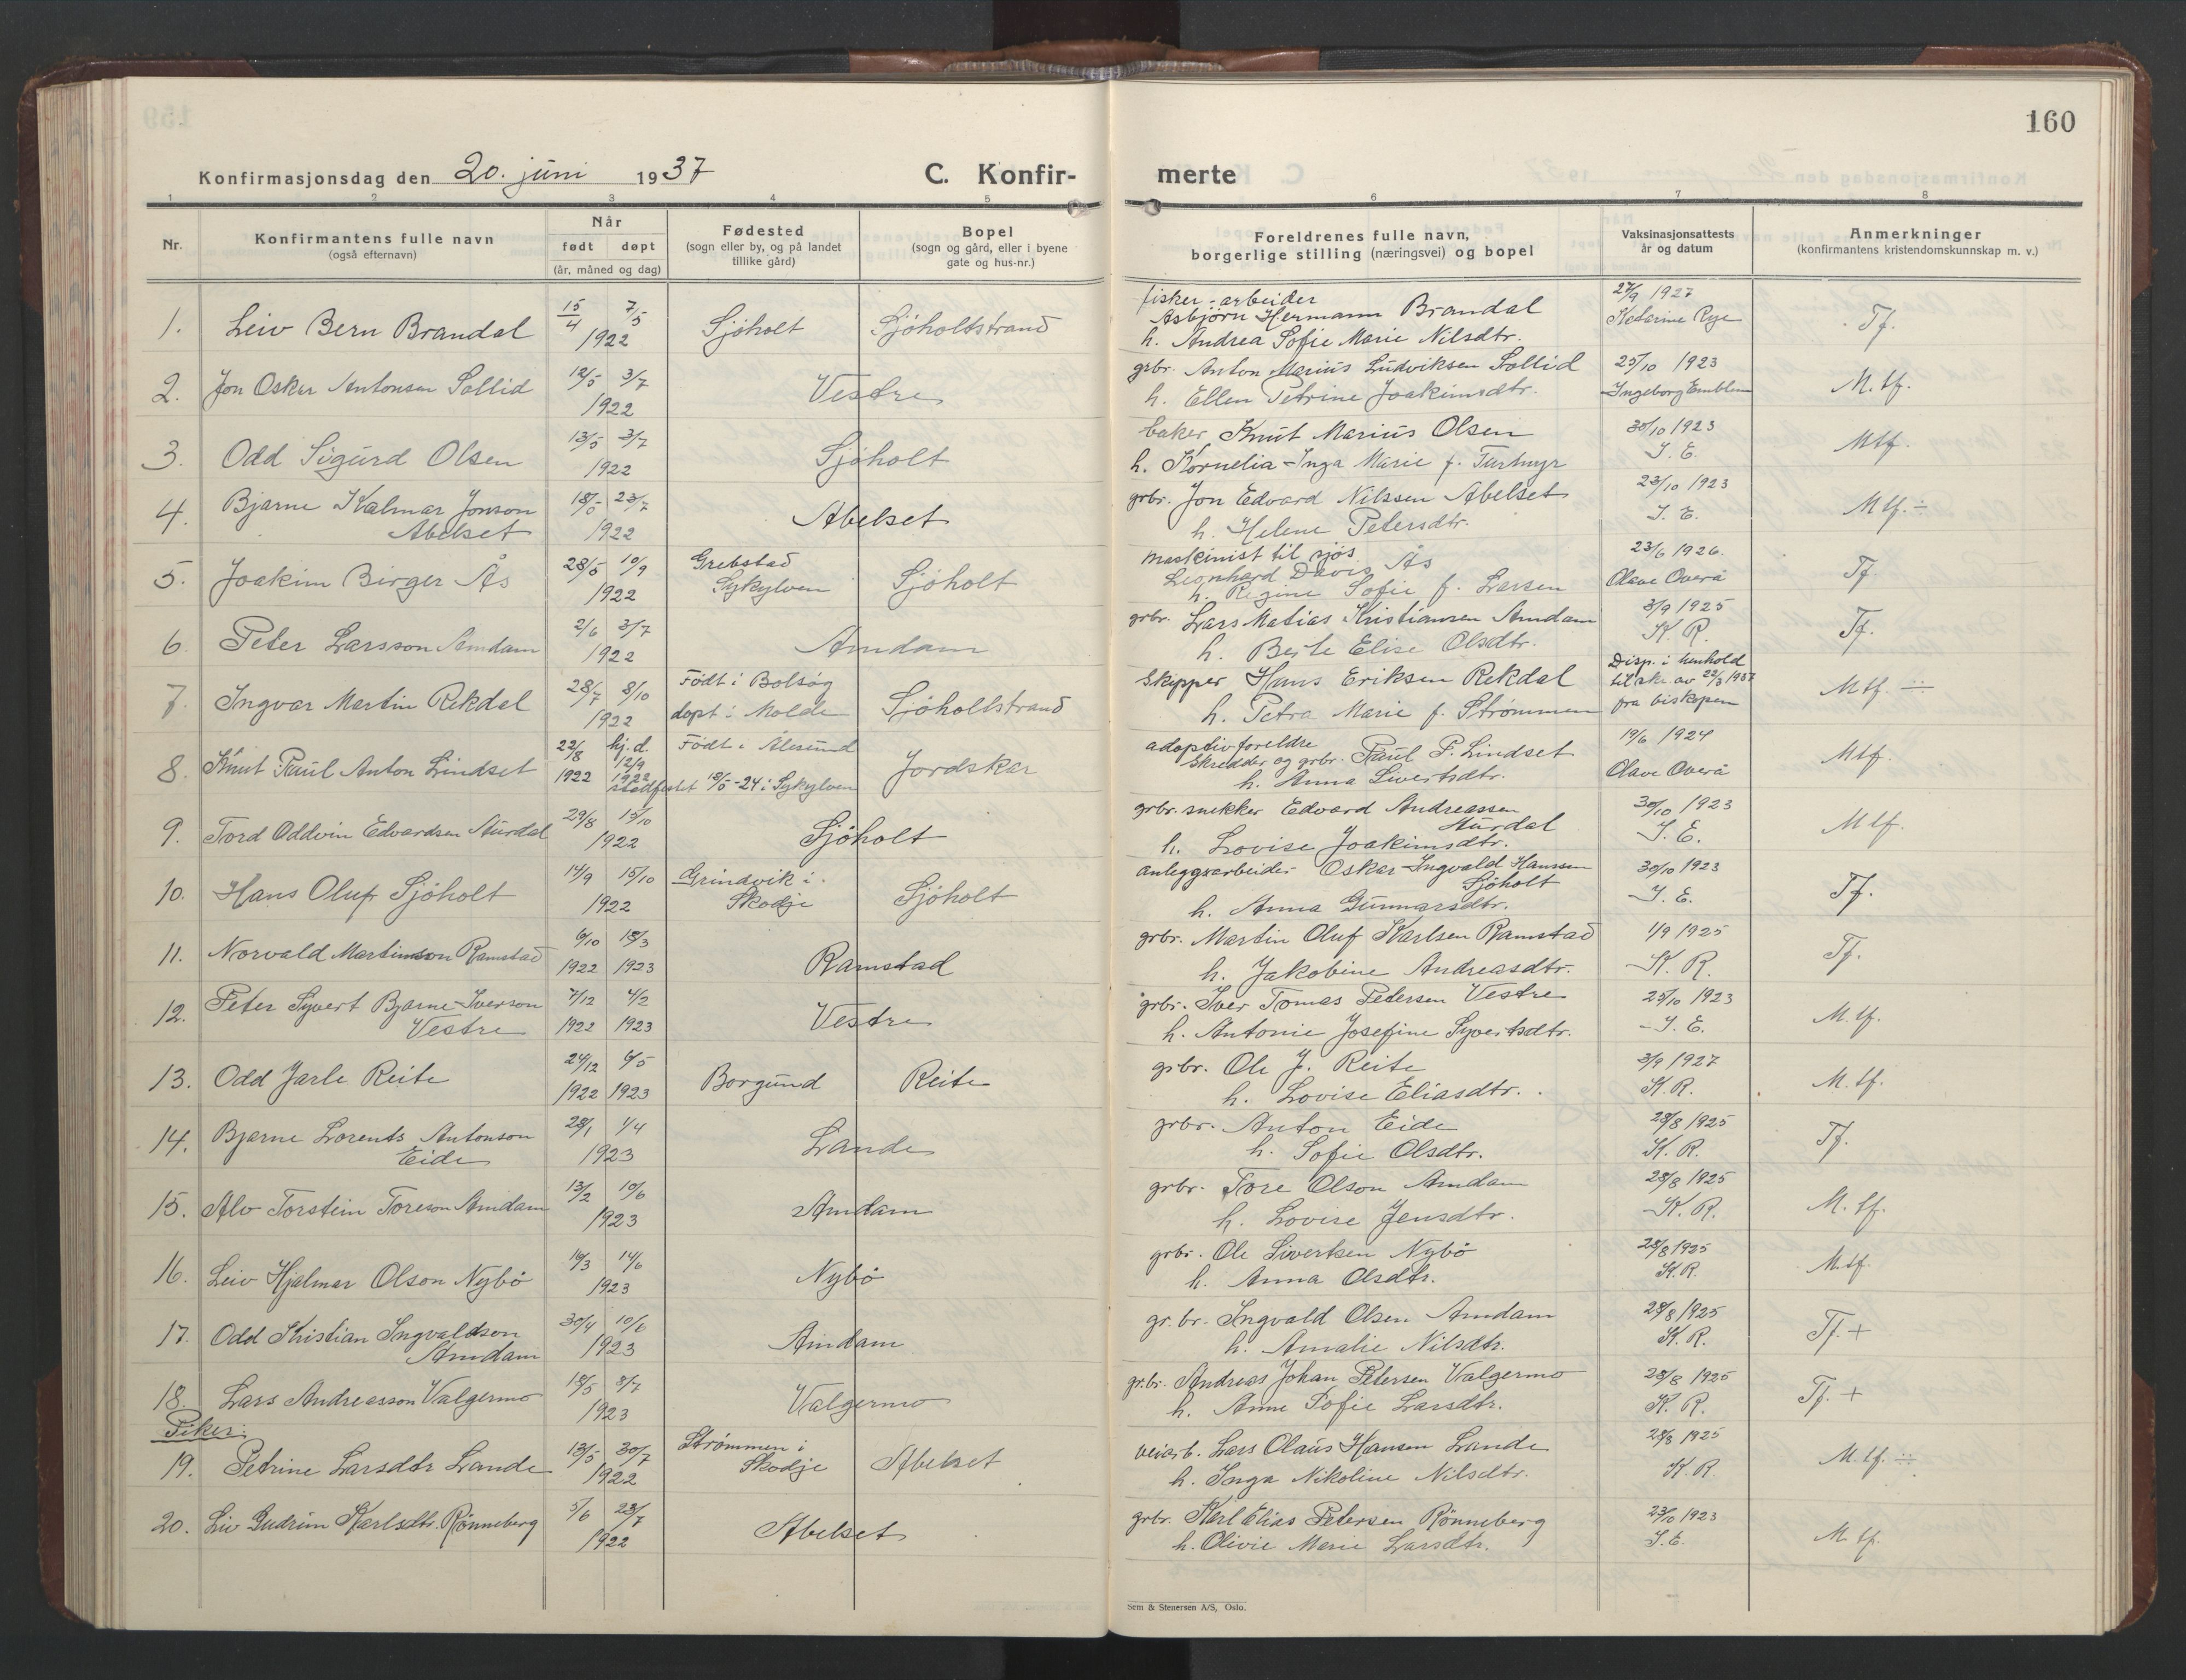 160
Konfirmasjonsdag den 20. juni 1937
C. Konfir-
merte
1 2 3 4 5 6 7 8
Nr.
Konfirmantens fulle navn
(også efternavn)
Når
født døpt
(år, måned og dag)
Fødested
(sogn eller by, og på landet
tillike gård)
Bopel
(sogn og gård, eller i byene
gate og hus-nr.)
Foreldrenes fulle navn,
borgerlige stilling (næringsvei) og bopel
Vaksinasjonsattests
år og datum
Anmerkninger
(konfirmantens kristendomskunnskap m. v.)
1. Leiv Bern Brandal 15/4 7/5 1922 Sjøholt Sjøholtstrand
fisker-arbeider
Asbjørn Hermann Brandal
h. Andrea Sofie Marie Nilsdtr.
27/9 1927
Katarine Rye
Tf.
2. Jon Oskar Antonsen Sollid 12/5 3/7 1922 Vestre
grbr. Anton Marius Ludviksen Sollid
h. Ellen Petrine Joakimsdtr.
25/10 1923
Ingeborg Emblem
M.tf.
3. Odd Sigurd Olsen 13/5 3/7 1922 Sjøholt
baker Knut Marius Olsen
h. Kornelia Inga Marie f.
30/10 1923
I. E.
Mtf.
4. Bjarne Kalmar Jonson
Abelset
18/5 23/7 1922 Abelset
grbr. Jon Edvard Nilssen Abelset
h. Helene Petersdtr.
23/10 1923
I. E.
Mtf. ÷
5. Joakim Birger Ås 28/5 10/9 1922
Grebstad
Sykylven
Sjøholt
maskinist til sjøs
Leonhard Davis Ås
h. Regine Sofie f. Larsen
23/6 1926.
Olave Overå
Tf
6. Peter Larsson Amdam 2/6 3/7 1922 Amdam
grbr. Lars Matias Kristiansen Amdam
h. Berte Elise Olsdtr.
3/9 1925
K. R.
Tf.
7. Ingvar Martin Rekdal 28/7 8/10 1922
Født i Bolsøy
døpt i Molde
Sjøholtstrand
Skipper Hans Eriksen Rekdal
h. Petra Marie f. Strømmen
Disp. i henhold
til skr. av 22/3 1937
fra biskopen
Mtf. ÷
8. Knut Paul Anton Lindset 22/8 1922 hj.d. 12/9 1922
Født i Ålesund
stadfestet 18/5-24 i Sykylven
Jordskar
adoptivforeldre
skredder og grbr. Paul P. Lindset
h. Anna Sivertsdtr.
19/6 1924
Olave Overå
Mtf.
9. Tord Oddvin Edvardsen Aurdal 29/8 15/10 1922 Sjøholt
grbr. snekker Edvard Andreassen
Aurdal
h. Lovise Joakimsdtr.
30/10 1923
I. E.
Mtf.
10. Hans Oluf Sjøholt 14/9 15/10 1922
Grindvik i
Skodje
Sjøholt
anleggsarbeider Oskar Ingvald Hanssen
Sjøholt
h. Anna Gunnarsdtr.
30/10 1923
I. E.
Tf.
11. Norvald Martinson Ramstad 6/10 1922 18/3 1923 Ramstad
grbr. Martin Oluf Karlsen Ramstad
h. Jakobine Andreasdtr.
1/9 1925
K. R.
Tf.
12. Peter Syvert Bjarne Iverson
Vestre
7/12 1922 4/2 1923 Vestre
grbr. Iver Tomas Petersen Vestre
h. Antonie Josefine Syvertsdtr.
25/10 1923
I. E.
M.tf.
13. Odd Jarle Reite 24/12 1922 6/5 1923 Borgund Reite
grbr. Ole J. Reite
h. Lovise Eliasdtr.
3/9 1927
K.R.
M.tf.
14. Bjarne Lorents Antonson
Eide
28/1 1/4 1923 Lande
grbr. Anton Eide
h. Sofie Olsdtr.
28/8 1925
K. R.
Tf.
15. Alv Torstein Toreson Amdam 13/2 10/6 1923 Amdam
grbr. Tore Olson Amdam
h. Lovise Jensdtr.
28/8 1925
K. R.
M. tf.
16. Leiv Hjalmar Olson Nybø 16/3 14/6 1923 Nybø
grbr. Ole Sivertsen Nybø
h. Anna Olsdtr.
28/8 1925
K.R.
M.tf.
17. Odd Kristian Ingvaldson
Amdam
30/4 10/6 1923 Amdam
gr.br. Ingvald Olsen Amdam
h. Amalie Nilsdtr.
28/8 1925
K. R.
Tf. +
18. Lars Andreasson Valgermo 18/5 8/7 1923 Valgermo
gr.br. Andreas Johan Petersen Valgermo
h. Anne Sofie Larsdtr.
28/8 1925
K. R.
Tf. +
Piker:
19. Petrine Larsdtr Lande 13/5 30/7 1922
Strømmen i
Skodje
Abelset
veiarb. Lars Olaus Hansen Lande
h. Inga Nikoline Nilsdtr.
28/8 1925
K. R.
M. tf. ÷
20. Liv Gudrun Karlsdtr. Rønneberg 5/6 23/7 1922 Abelset
grbr. Karl Elias Petersen Rønneberg
h. Olivie Marie Larsdtr.
23/10 1923
I.E.
M. tf.
Sem & Stenersen A/S, Oslo.